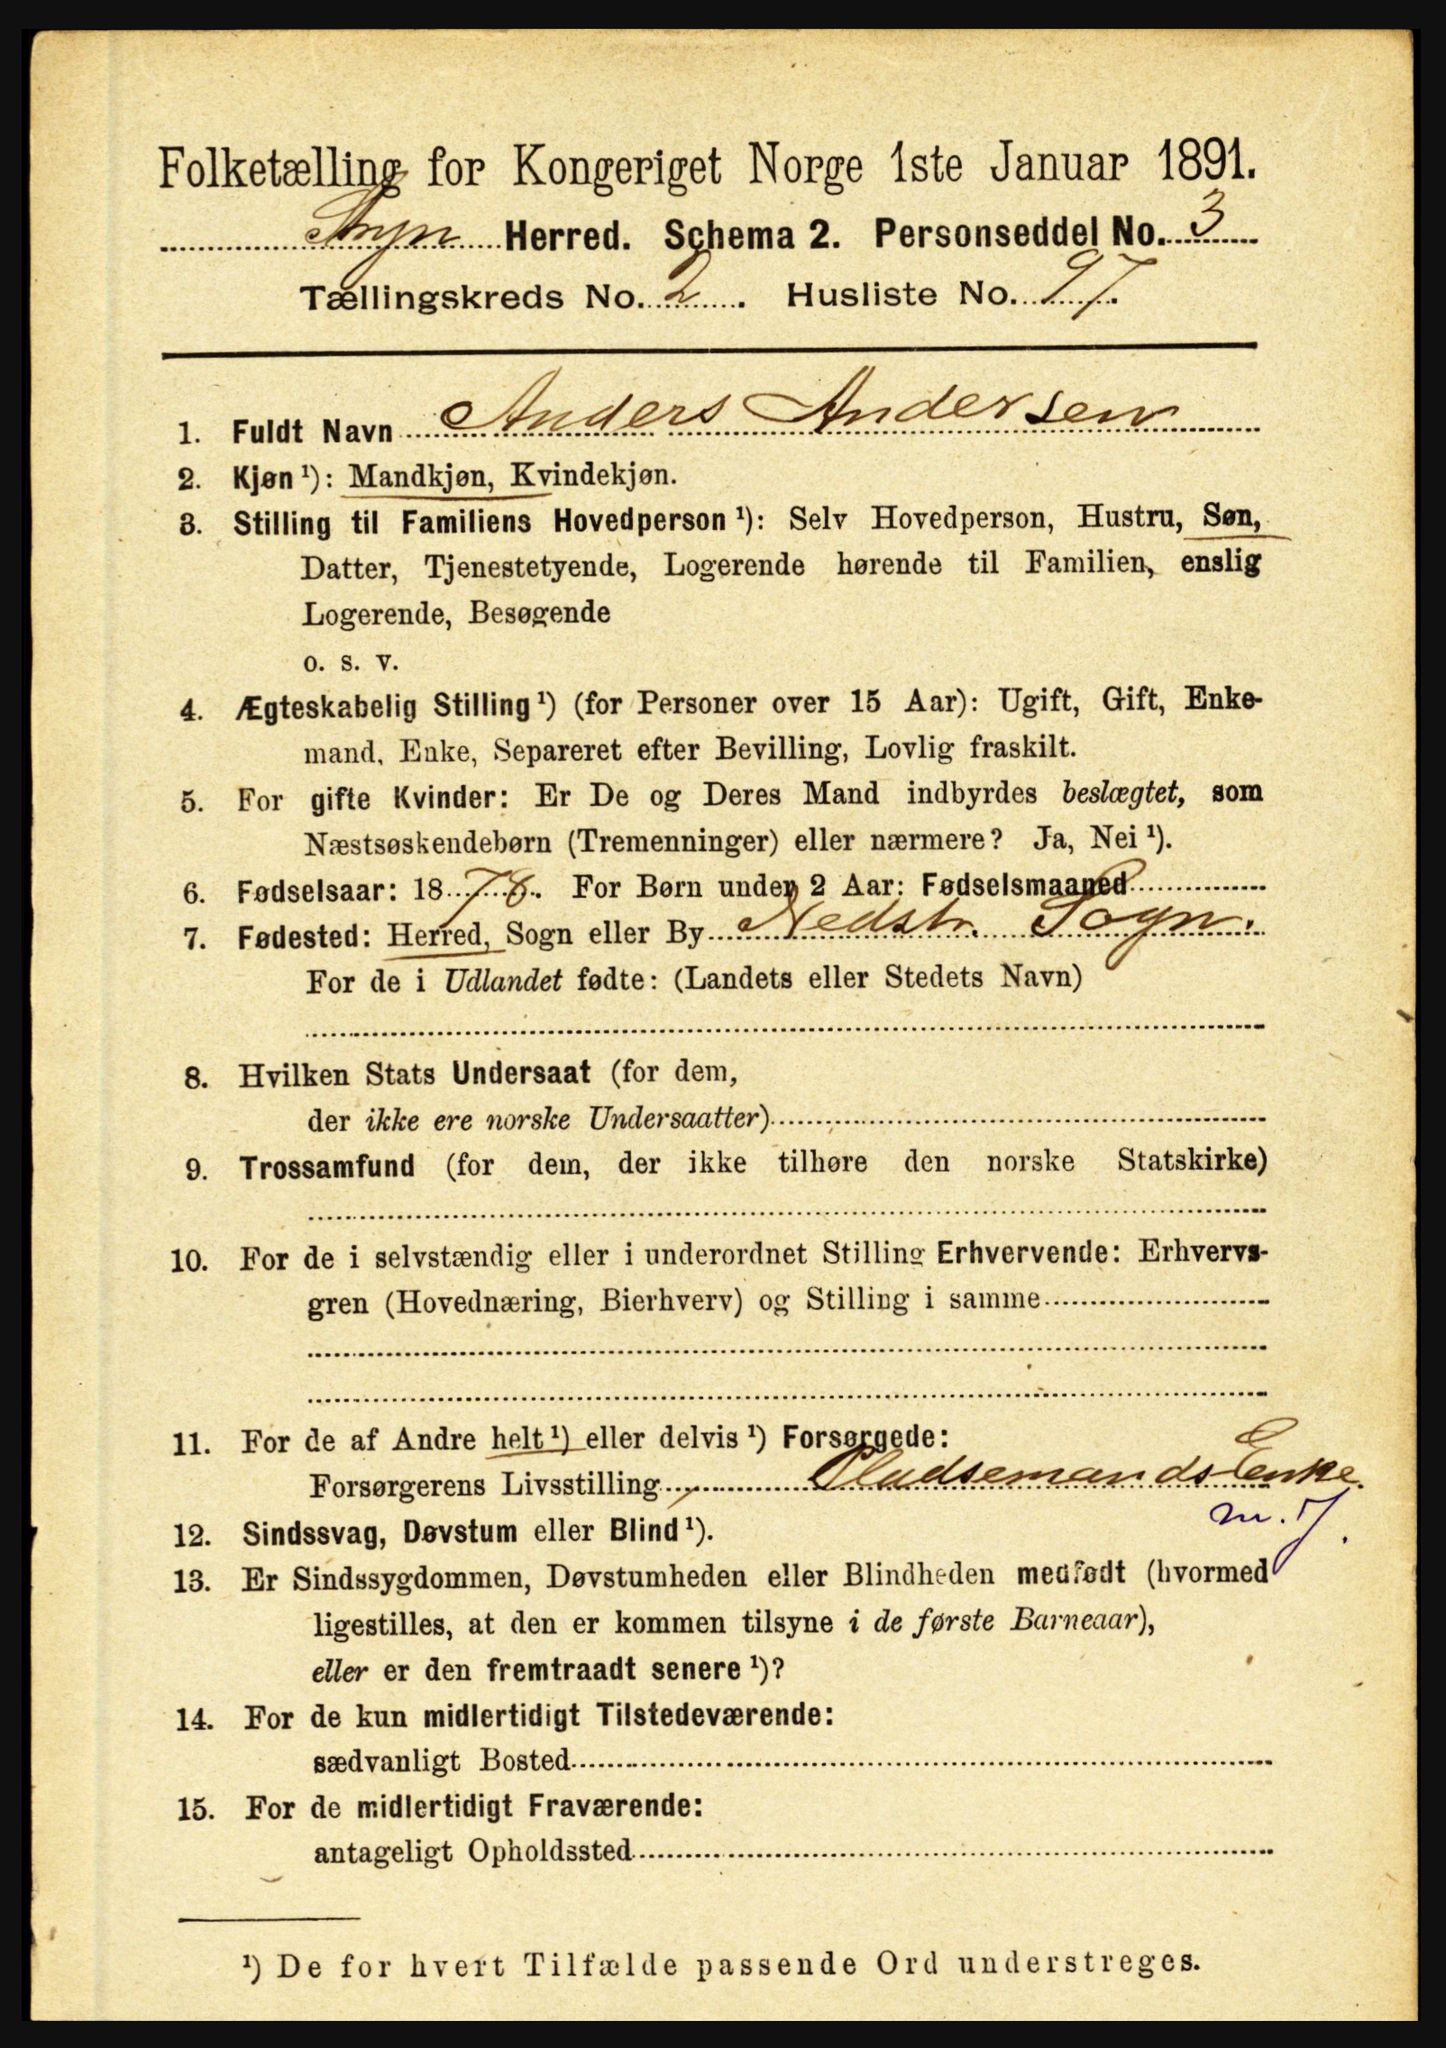 Folketælling for Kongeriget Norge 1ste Januar 1891.
Stryn Herred. Schema 2. Personseddel No. 3
Tællingskreds No. 2. Husliste No. 97.
1. Fuldt Navn Anders Andersen
2. Kjøn ¹): Mandkjøn, Kvindekjøn.
3. Stilling til Familiens Hovedperson ¹): Selv Hovedperson, Hustru, Søn,
Datter, Tjenestetyende, Logerende hørende til Familien, enslig
Logerende, Besøgende
o. s. v.
4. Ægteskabelig Stilling ¹) (for Personer over 15 Aar): Ugift, Gift, Enke-
mand, Enke, Separeret efter Bevilling, Lovlig fraskilt.
5. For gifte Kvinder: Er De og Deres Mand indbyrdes beslægtet, som
Næstsøskendebørn (Tremenninger) eller nærmere? Ja, Nei ¹).
6. Fødselsaar: 1878. For Børn under 2 Aar: Fødselsmaaned
7. Fødested: Herred, Sogn eller By Nedstr. Sogn.
For de i Udlandet fødte: (Landets eller Stedets Navn)
8. Hvilken Stats Undersaat (for dem,
der ikke ere norske Undersaatter)
9. Trossamfund (for dem, der ikke tilhøre den norske Statskirke)
10. For de i selvstændig eller i underordnet Stilling Erhvervende: Erhvervs-
gren (Hovednæring, Bierhverv) og Stilling i samme
11. For de af Andre helt ¹) eller delvis ¹) Forsørgede:
Forsørgerens Livsstilling Pladsemands Enke.
m. J.
12. Sindssvag, Døvstum eller Blind ¹).
13. Er Sindssygdommen, Døvstumheden eller Blindheden medfødt (hvormed
ligestilles, at den er kommen tilsyne i de første Barneaar),
eller er den fremtraadt senere ¹)?
14. For de kun midlertidigt Tilstedeværende:
sædvanligt Bosted
15. For de midlertidigt Fraværende:
antageligt Opholdssted
¹) De for hvert Tilfælde passende Ord understreges.